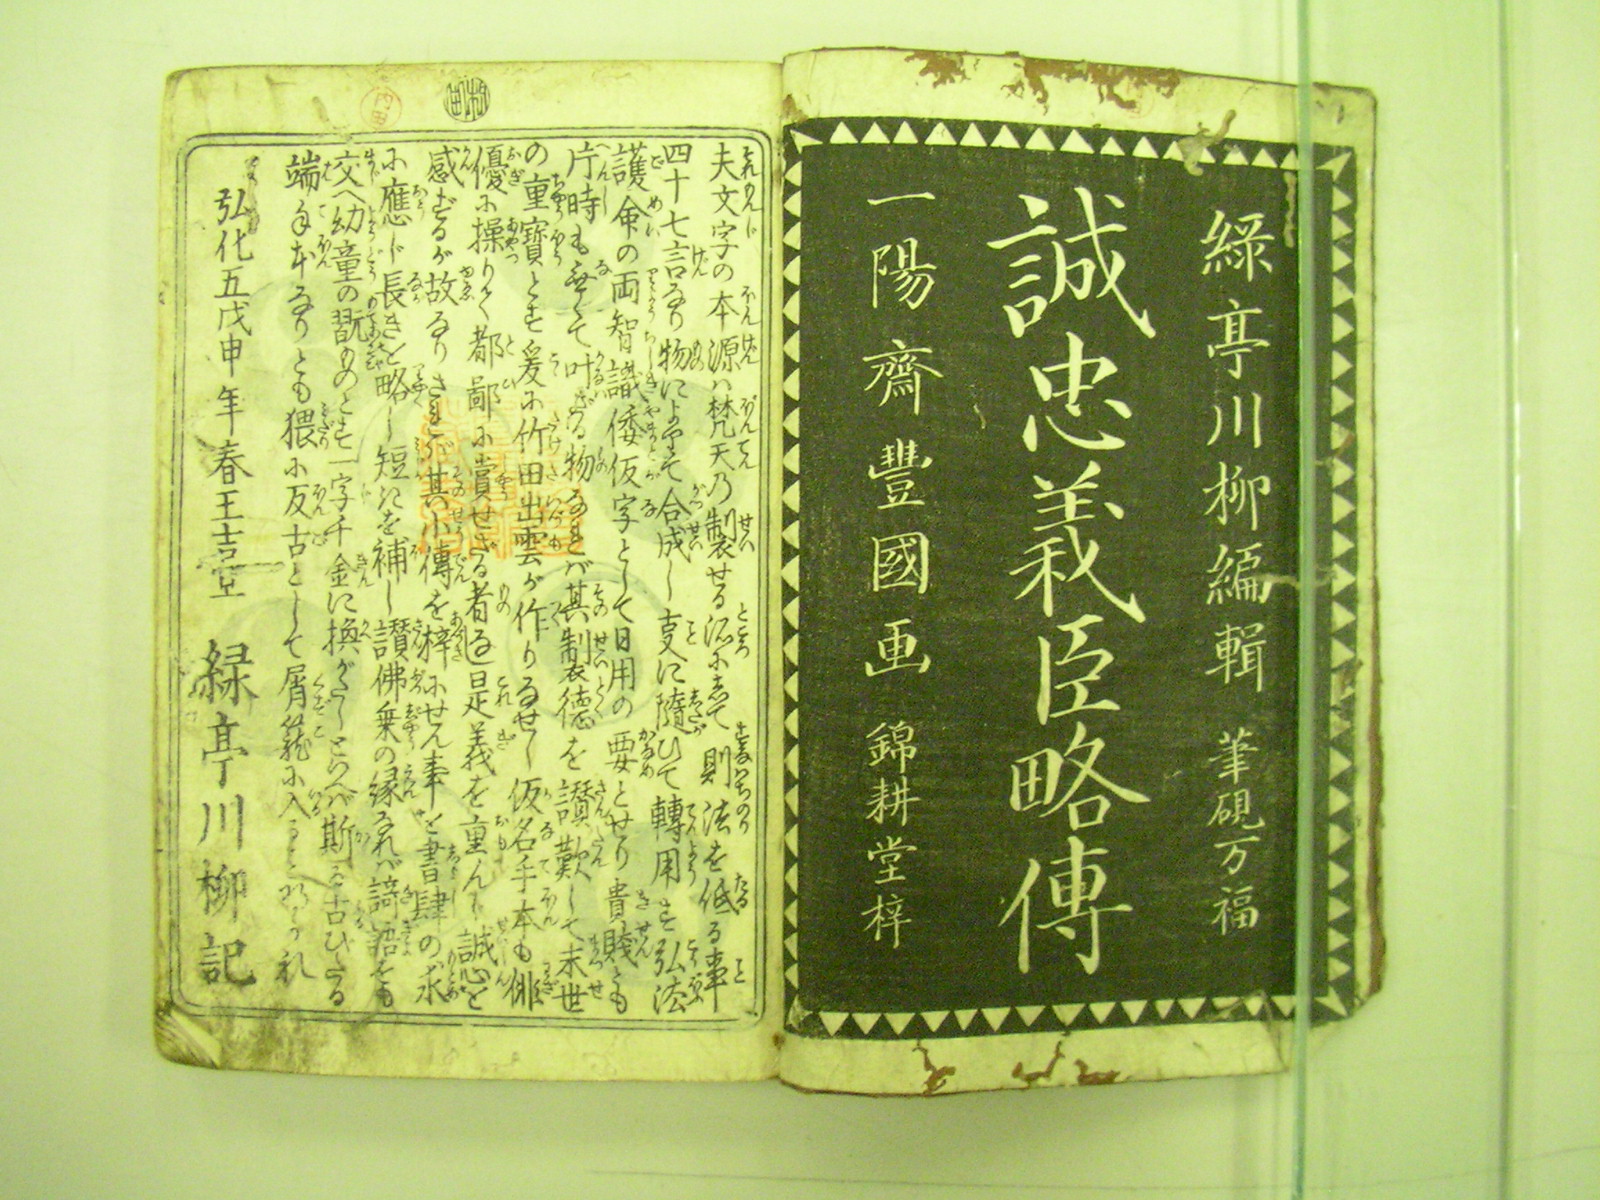 緑亭川柳編輯 筆硯万福
誠忠義臣略傳
一陽齋豐國画 錦耕堂梓
夫文字の本源ハ梵天乃製せる所にして則法を低る事
四十七言なり物によそて合成し支に隨ひて轉用す弘法
護命の両智識倭仮字として日用の要とせり貴賎とも
片時も無して叶ざる物なれバ其制徳を讃歎して末世
の重寳とす爰に竹田出雲が作りなせし仮名手本も俳
優に操りて都鄙に賞せざる者なし是義を重んじ誠心を
感ずるが故なりされバ其小傳を梓にせん事を書肆の求
に應じ長きを略し短きを補し讃佛乗の縁なれバ綺語をも
交へ幼童の翫ものとす一字千金に換がたしといへバ斯
端手本なりとも猥に反古として屑籠に入
弘化五戊申年春王吉
緑亭川柳記